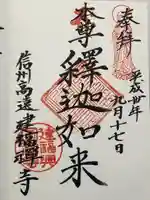 奉拝
平成卅年九月十七日
本尊
釋迦如来
信州高遠
建福禅寺